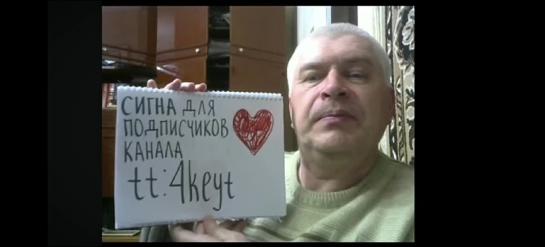 СИГНА ДЛЯ
ПОДПИСЧИКОВ
КАНАЛА
tt:4keyt